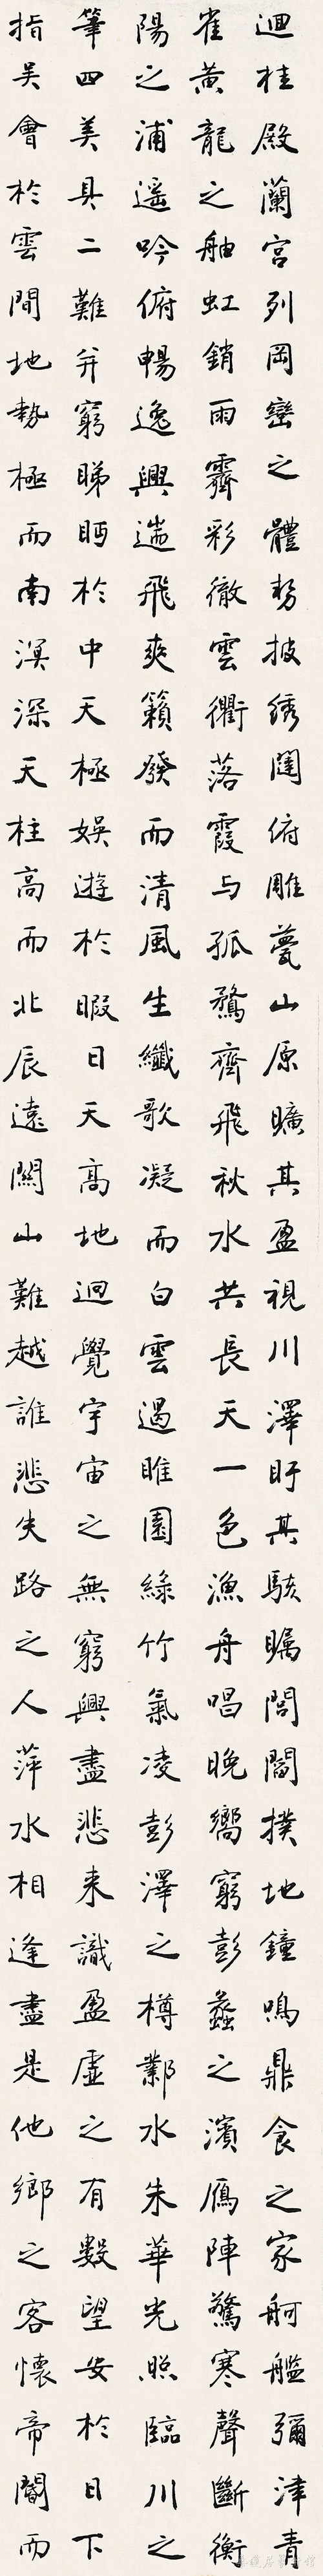 迴桂殿蘭宮列岡巒之體勢披綉闥俯雕甍山原曠其盈視川澤盱其駭矚閭閻撲地鐘鳴鼎食之家舸艦彌津青
雀黃龍之舳虹銷雨霽彩徹雲衢落霞与孤鶩齊飛秋水共長天一色漁舟唱晚嚮窮彭蠡之濱鴈陣驚寒聲斷衡
陽之浦遥吟俯暢逸興遄飛爽籟發而清風生纖歌凝而白雲遏睢園綠竹氣凌彭澤之樽鄴水朱華光照臨川之
筆四美具二難并窮睇眄於中天極娛遊於暇日天高地迥覺宇宙之無窮興盡悲来識盈虛之有數望安於日下
指吴會於雲間地勢極而南溟深天柱高而北辰遠關山難越誰悲失路之人萍水相逢盡是他鄉之客懷帝閽而